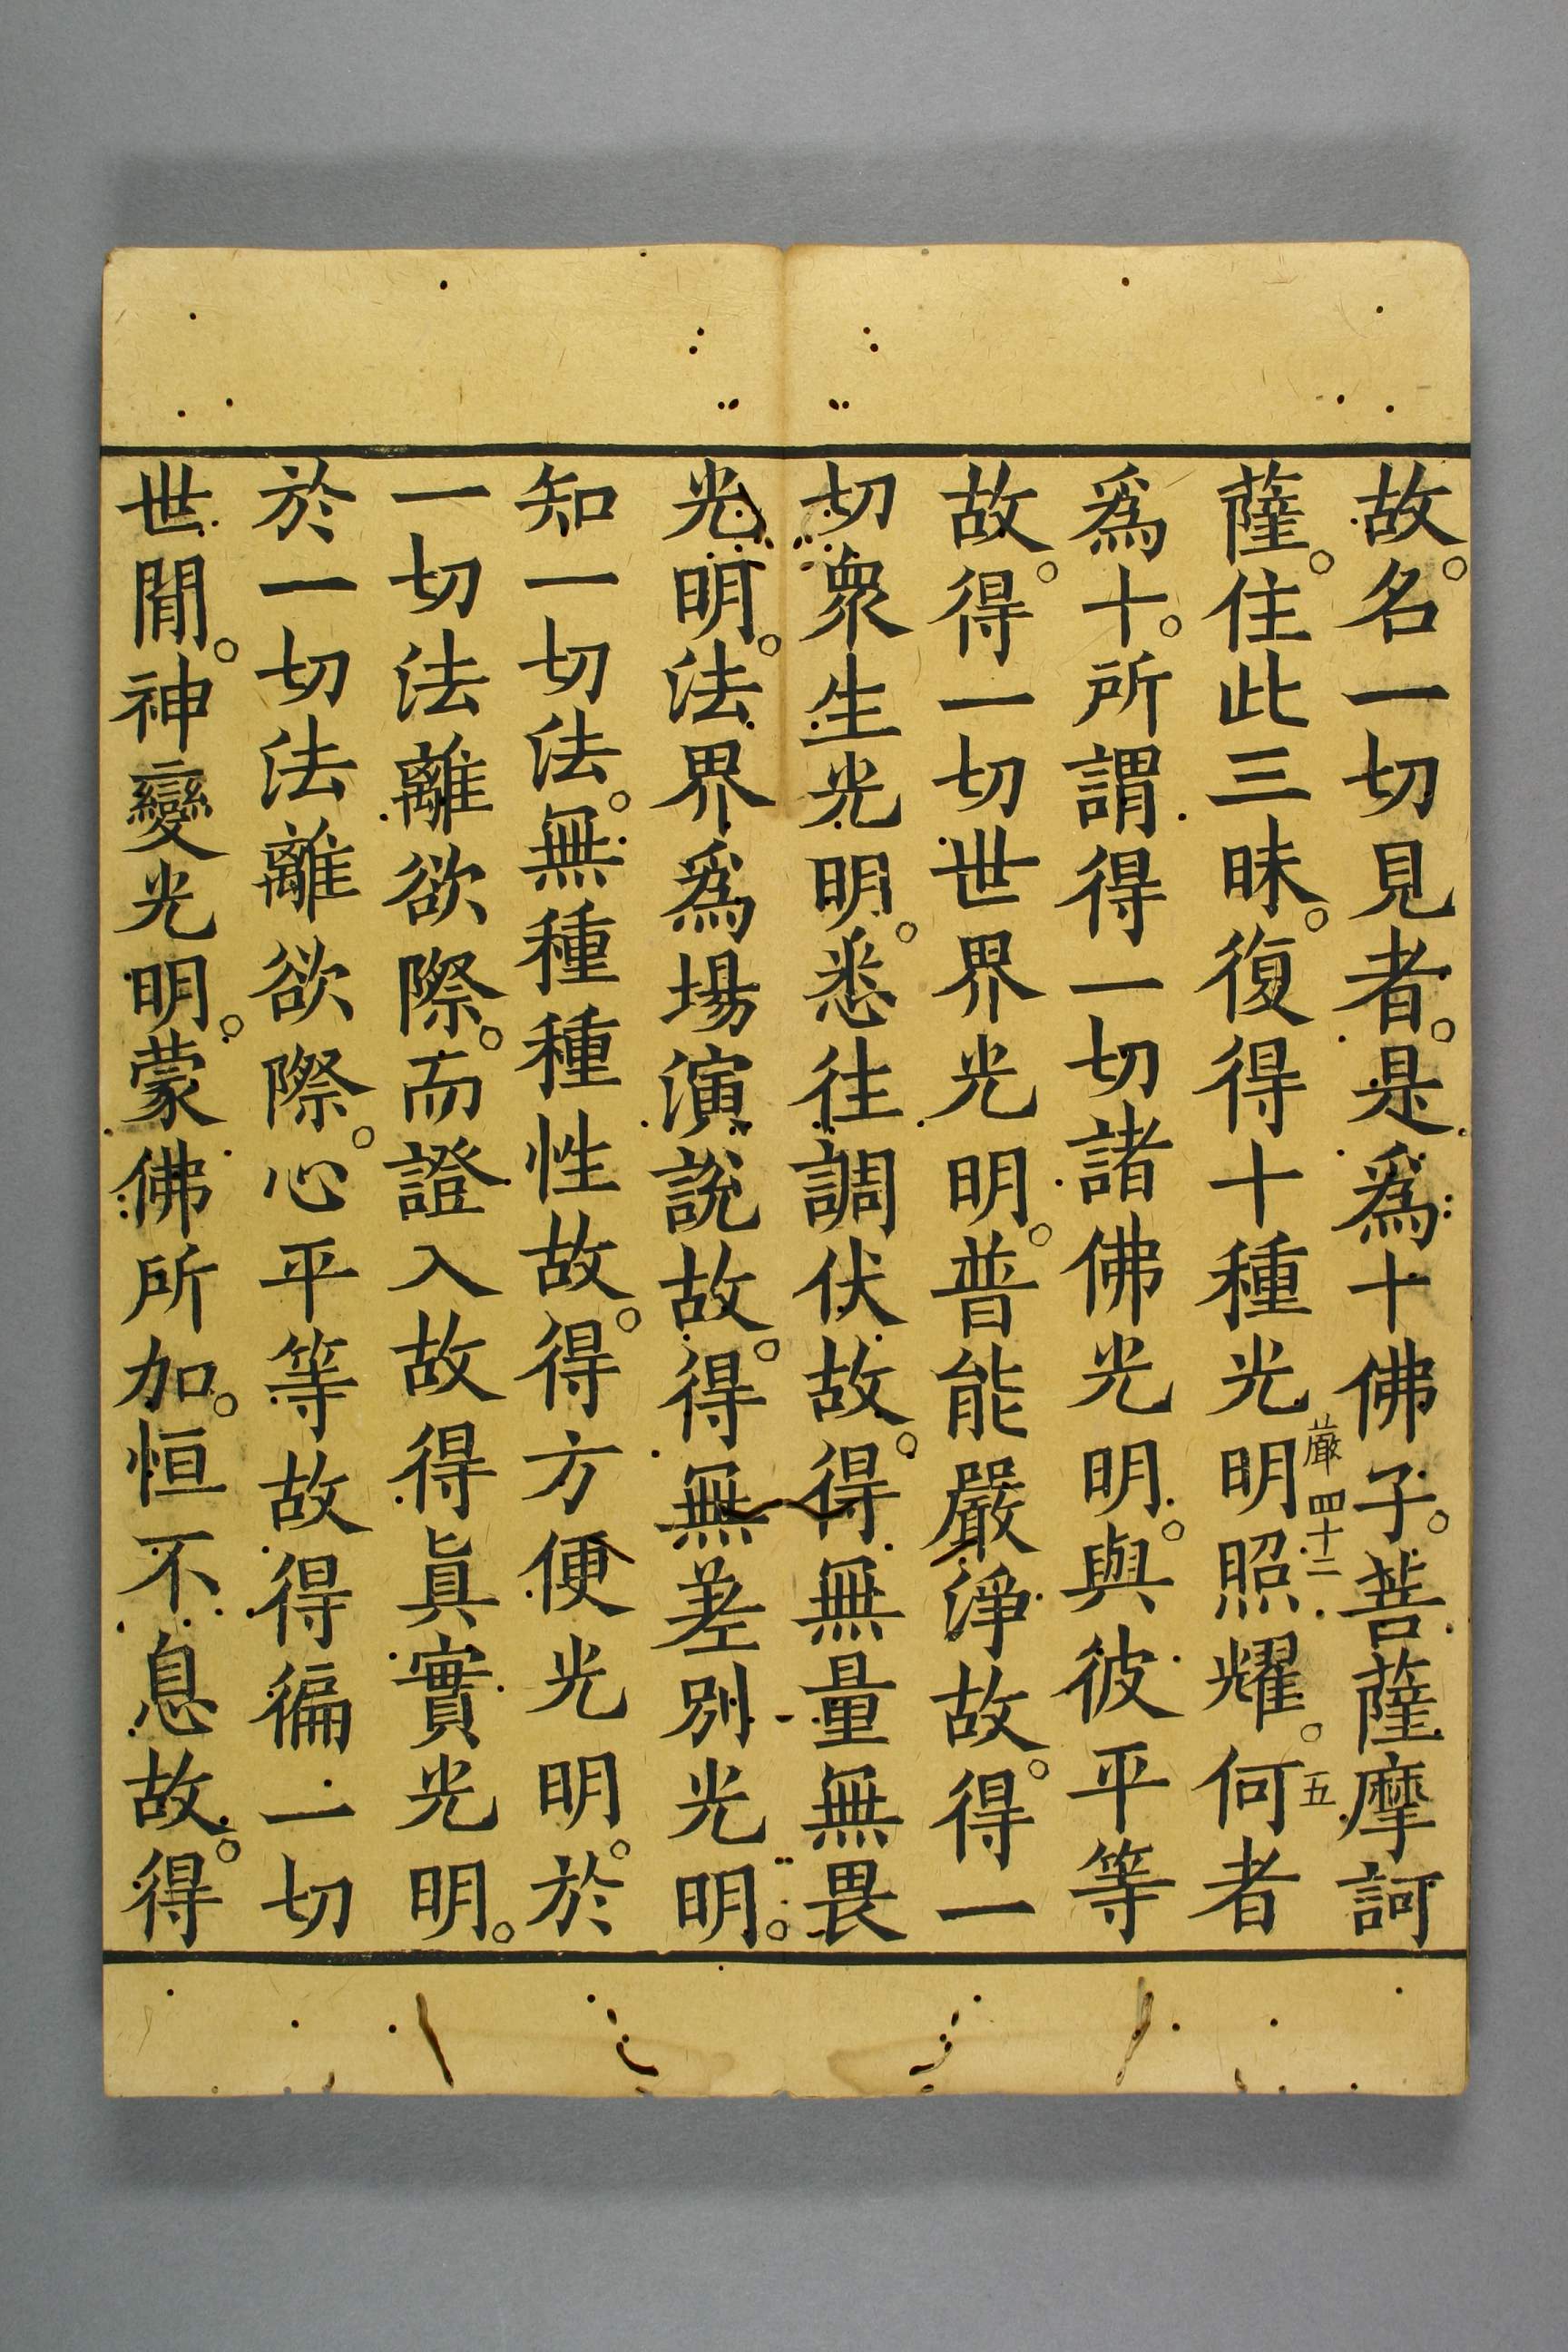 故。名一切見者。是爲十佛子。菩薩摩訶
嚴 四十二 五
薩。住此三昧。復得十種光明照耀。何者
爲十。所謂得一切諸佛光明。與彼平等
故。得一切世界光明。普能嚴淨故。得一
切衆生光明。悉往調伏故。得無量無畏
光明。法界爲場演說故。得無差別光明。
知一切法。無種種性故。得方便光明。於
一切法離欲際。而證入故得眞實光明。
於一切法離欲際。心平等故得徧一切
世閒。神變光明。蒙佛所加。恒不息故。得